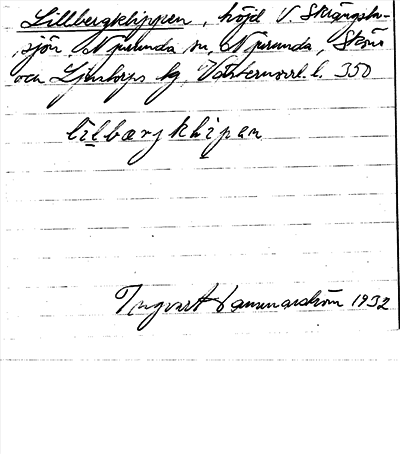 Lillbergklippen, höjd V. Skrängsta-
sjön, Njurunda sn, Njurunda, Sköns
och Ljustorps tg, Västernorrl. l. 350
lilbærgkḷipen
Ingvart Dammarström 1932